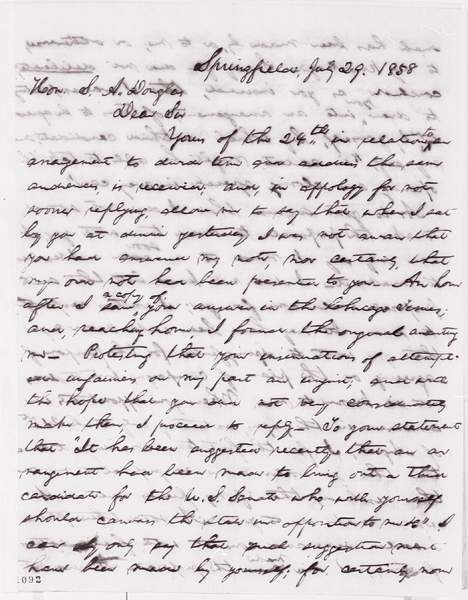 Springfield, July 29. 1858
Hon. S. A. Douglas
Dear Sir
Yours of the 24th in relation to an ar-
rangement to divide time and address the same
audiences, is received; and, in appology for not
sooner replying, allow me to say that when I sat
by you at dinner yesterday I was not aware that
you had answered my note, nor certainly, that
my own note had been presented to you. An hour
after I saw a copy of your answer in the Chicago Times;
and, reaching home, I found the original awaiting
me. Protesting that your insinuations of attempt-
ed unfairness on my part are unjust; and with
the hope that you did not very considerately
make them, I proceed to reply. To your statement
that "It has been suggested recently that an ar-
rangement had been made to bring out a third
candidate for the U.S. Senate who, with yourself
should canvass the state in opposition to me &c" I
can only say that such suggestion must
have been made by yourself; for certainly none
1092